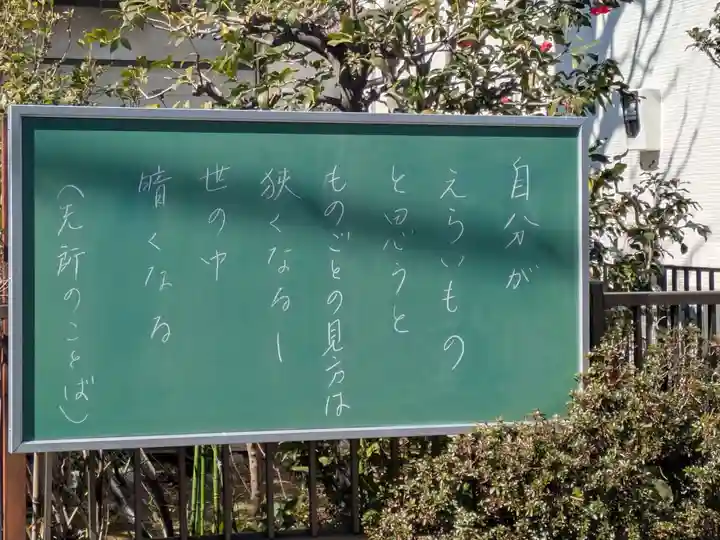 自分が
えらいもの
と思うと
ものごとの見方は
狭くなるし
世の中
暗くなる
(先所のことば)